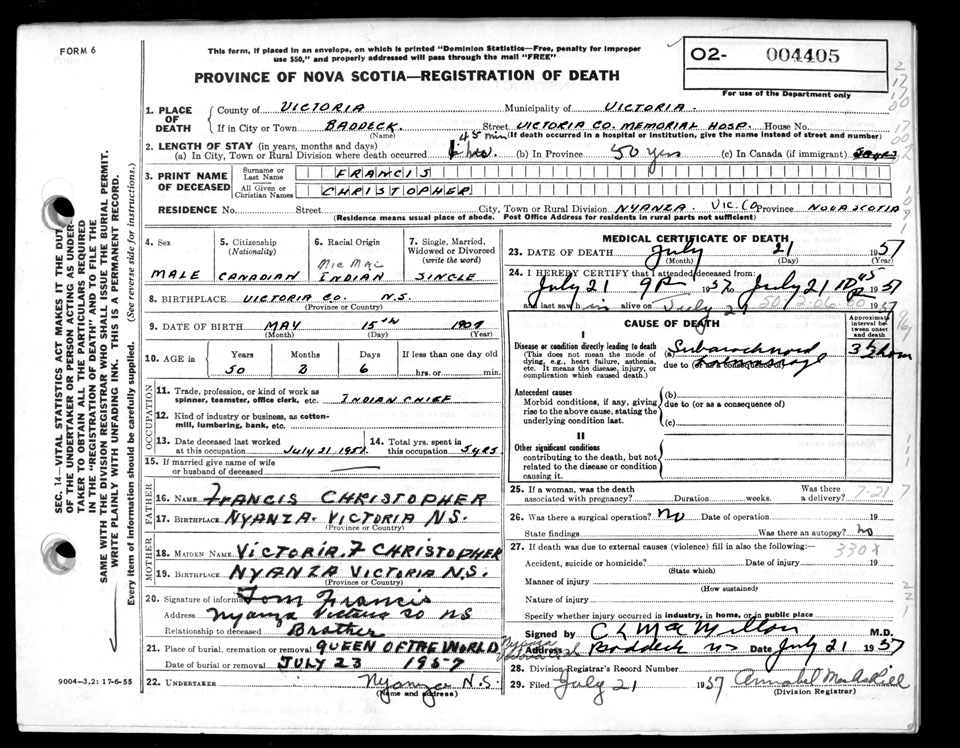 FORM 6
This form, if placed in an envelope, on which is printed "Dominion Statistics—Free, penalty for improper
use $50," and properly addressed will pass through the mail "FREE"
PROVINCE OF NOVA SCOTIA—REGISTRATION OF DEATH
O2- 004405
For use of the Department only
1. PLACE OF DEATH
County of VICTORIA Municipality of VICTORIA.
If in City or Town BADDECK. Street VICTORIA CO. MEMORIAL HOSP. House No.
(Name) (If death occurred in a hospital or institution, give the name instead of street and number)
2. LENGTH OF STAY (in years, months and days)
45 min
(a) In City, Town or Rural Division where death occurred hrs. (b) In Province 50 yrs (c) In Canada (if immigrant)
3. PRINT NAME OF DECEASED
Surname or Last Name FRANCIS
All Given or Christian Names CHRISTOPHER
RESIDENCE No. Street City, Town or Rural Division NYANZA. VIC. CO Province NOVA SCOTIA
(Residence means usual place of abode. Post Office Address for residents in rural parts not sufficient)
4. Sex MALE
5. Citizenship (Nationality) CANADIAN
6. Racial Origin Mic Mac INDIAN
7. Single, Married, Widowed or Divorced (write the word) SINGLE
8. BIRTHPLACE VICTORIA CO. N.S.
(Province or Country)
9. DATE OF BIRTH MAY 15TH 1907
(Month) (Day) (Year)
10. AGE in Years Months Days If less than one day old
50 2 6 hrs. or min.
OCCUPATION
11. Trade, profession, or kind of work as
spinner, teamster, office clerk, etc. INDIAN CHIEF
12. Kind of industry or business, as cotton-
mill, lumbering, bank, etc.
13. Date deceased last worked
at this occupation July 21 1957
14. Total yrs. spent in
this occupation 5 yrs
15. If married give name of wife
or husband of deceased
FATHER
16. NAME FRANCIS CHRISTOPHER
17. BIRTHPLACE NYANZA. VICTORIA N.S.
(Province or Country)
MOTHER
18. MAIDEN NAME VICTORIA. F CHRISTOPHER
19. BIRTHPLACE NYANZA VICTORIA N.S.
(Province or Country)
20. Signature of informant Tom Francis
Address Nyanza Victoria co NS
Relationship to deceased Brother
21. Place of burial, cremation or removal QUEEN OF THE WORLD, Nyanza
Date of burial or removal JULY 23 1957
22. UNDERTAKER Nyanza N.S.
(Name and address)
9004-3.2: 17-6-55
MEDICAL CERTIFICATE OF DEATH
23. DATE OF DEATH July 21 1957
(Month) (Day) (Year)
24. I HEREBY CERTIFY that I attended deceased from:
July 21 9P 1957 to July 21 10 45 P 1957
and last saw him alive on July 21 1957
CAUSE OF DEATH
Approximate interval between onset and death
I
Disease or condition directly leading to death
(This does not mean the mode of
dying, e.g., heart failure, asthenia,
etc. It means the disease, injury, or
complication which caused death.)
(a) Subarachnoid
due to (or as a consequence of)
3 1/2 hours
Antecedent causes
Morbid conditions, if any, giving
rise to the above cause, stating the
underlying condition last.
(b)
due to (or as a consequence of)
(c)
II
Other significant conditions
contributing to the death, but not
related to the disease or condition
causing it.
25. If a woman, was the death
associated with pregnancy? Duration weeks. Was there a delivery?
7-21 7
26. Was there a surgical operation? no Date of operation 19
State findings Was there an autopsy? no
27. If death was due to external causes (violence) fill in also the following:—
330X
Accident, suicide or homicide? Date of injury 19
(State which)
Manner of injury
(How sustained)
Nature of injury
Specify whether injury occurred in industry, in home, or in public place
Signed by C L MacMillan M.D.
Address Baddeck NS Date July 21 1957
28. Division Registrar's Record Number
29. Filed July 21 1957 Annabel MacAskill
(Division Registrar)
SEC. 14—VITAL STATISTICS ACT MAKES IT THE DUTY
OF THE UNDERTAKER OR PERSON ACTING AS UNDER-
TAKER TO OBTAIN ALL THE PARTICULARS REQUIRED
IN THE "REGISTRATION OF DEATH" AND TO FILE THE
SAME WITH THE DIVISION REGISTRAR WHO SHALL ISSUE THE BURIAL PERMIT.
WRITE PLAINLY WITH UNFADING INK. THIS IS A PERMANENT RECORD.
Every item of information should be carefully supplied. (See reverse side for instructions.)